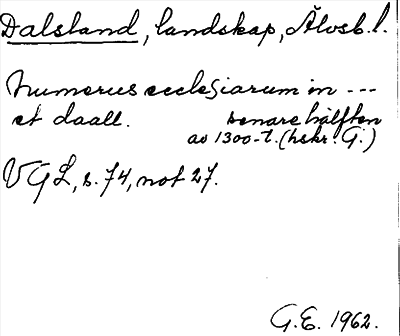 Dalsland, landskap, Älvsb. l.
Numerus ecclesiarum in ---
et daall. senare hälften
av 1300-t. (hskr. G.)
VGL, s. 74, not 27.
G.E. 1962.